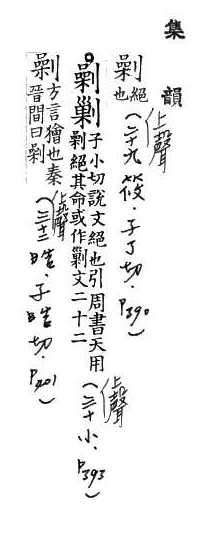 集韻
劋 絕也 上聲(二十九 筱·子了切·P390)
劋剿 子小切說文絕也引周書天用
劋絕其命或作剿文二十二 上聲(三十小·P393)
劋 方言獪也秦
晉間曰劋 上聲(三十二晧·子晧切·P401)